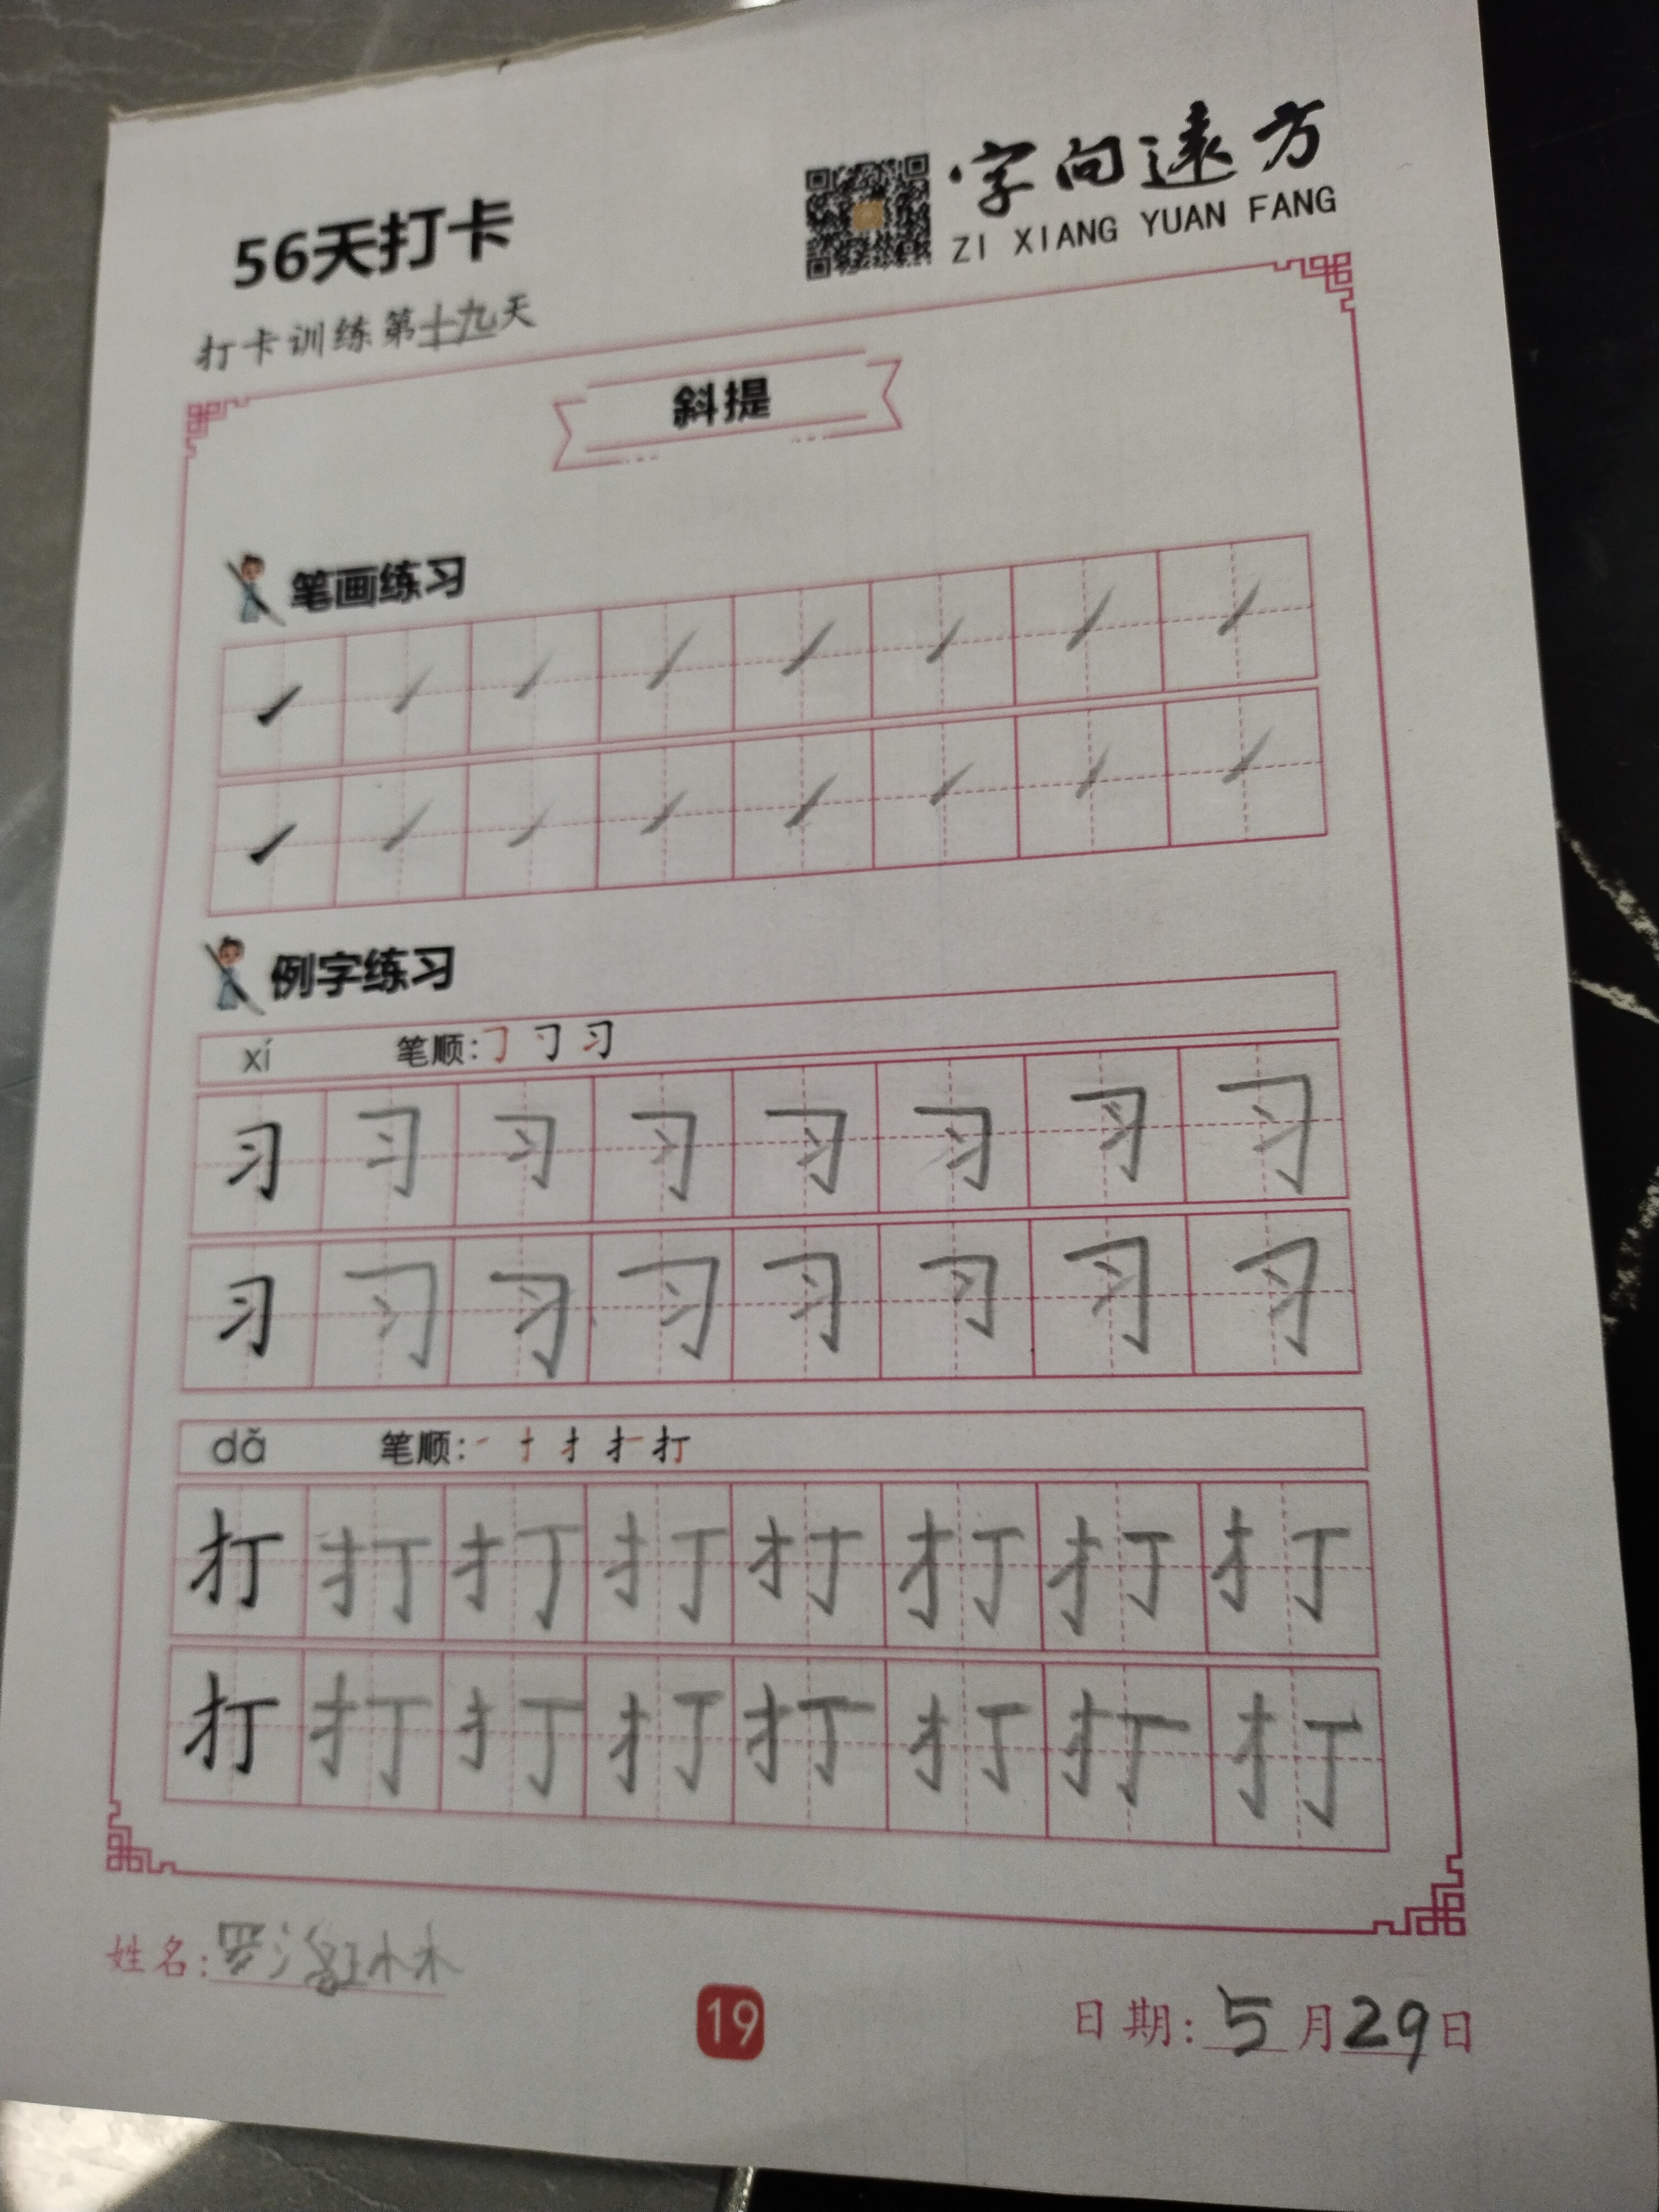 56天打卡
字向遠方
ZI XIANG YUAN FANG
打卡训练第十九天
斜提
笔画练习
例字练习
xí 笔顺:㇆ 刁 习
习 习 习 习 习 习 习 习
习 习 习 习 习 习 习 习
dǎ 笔顺:一 十 扌 扌一 打
打 打 打 打 打 打 打 打
打 打 打 打 打 打 打 打
姓名:罗
19
日期:5月29日